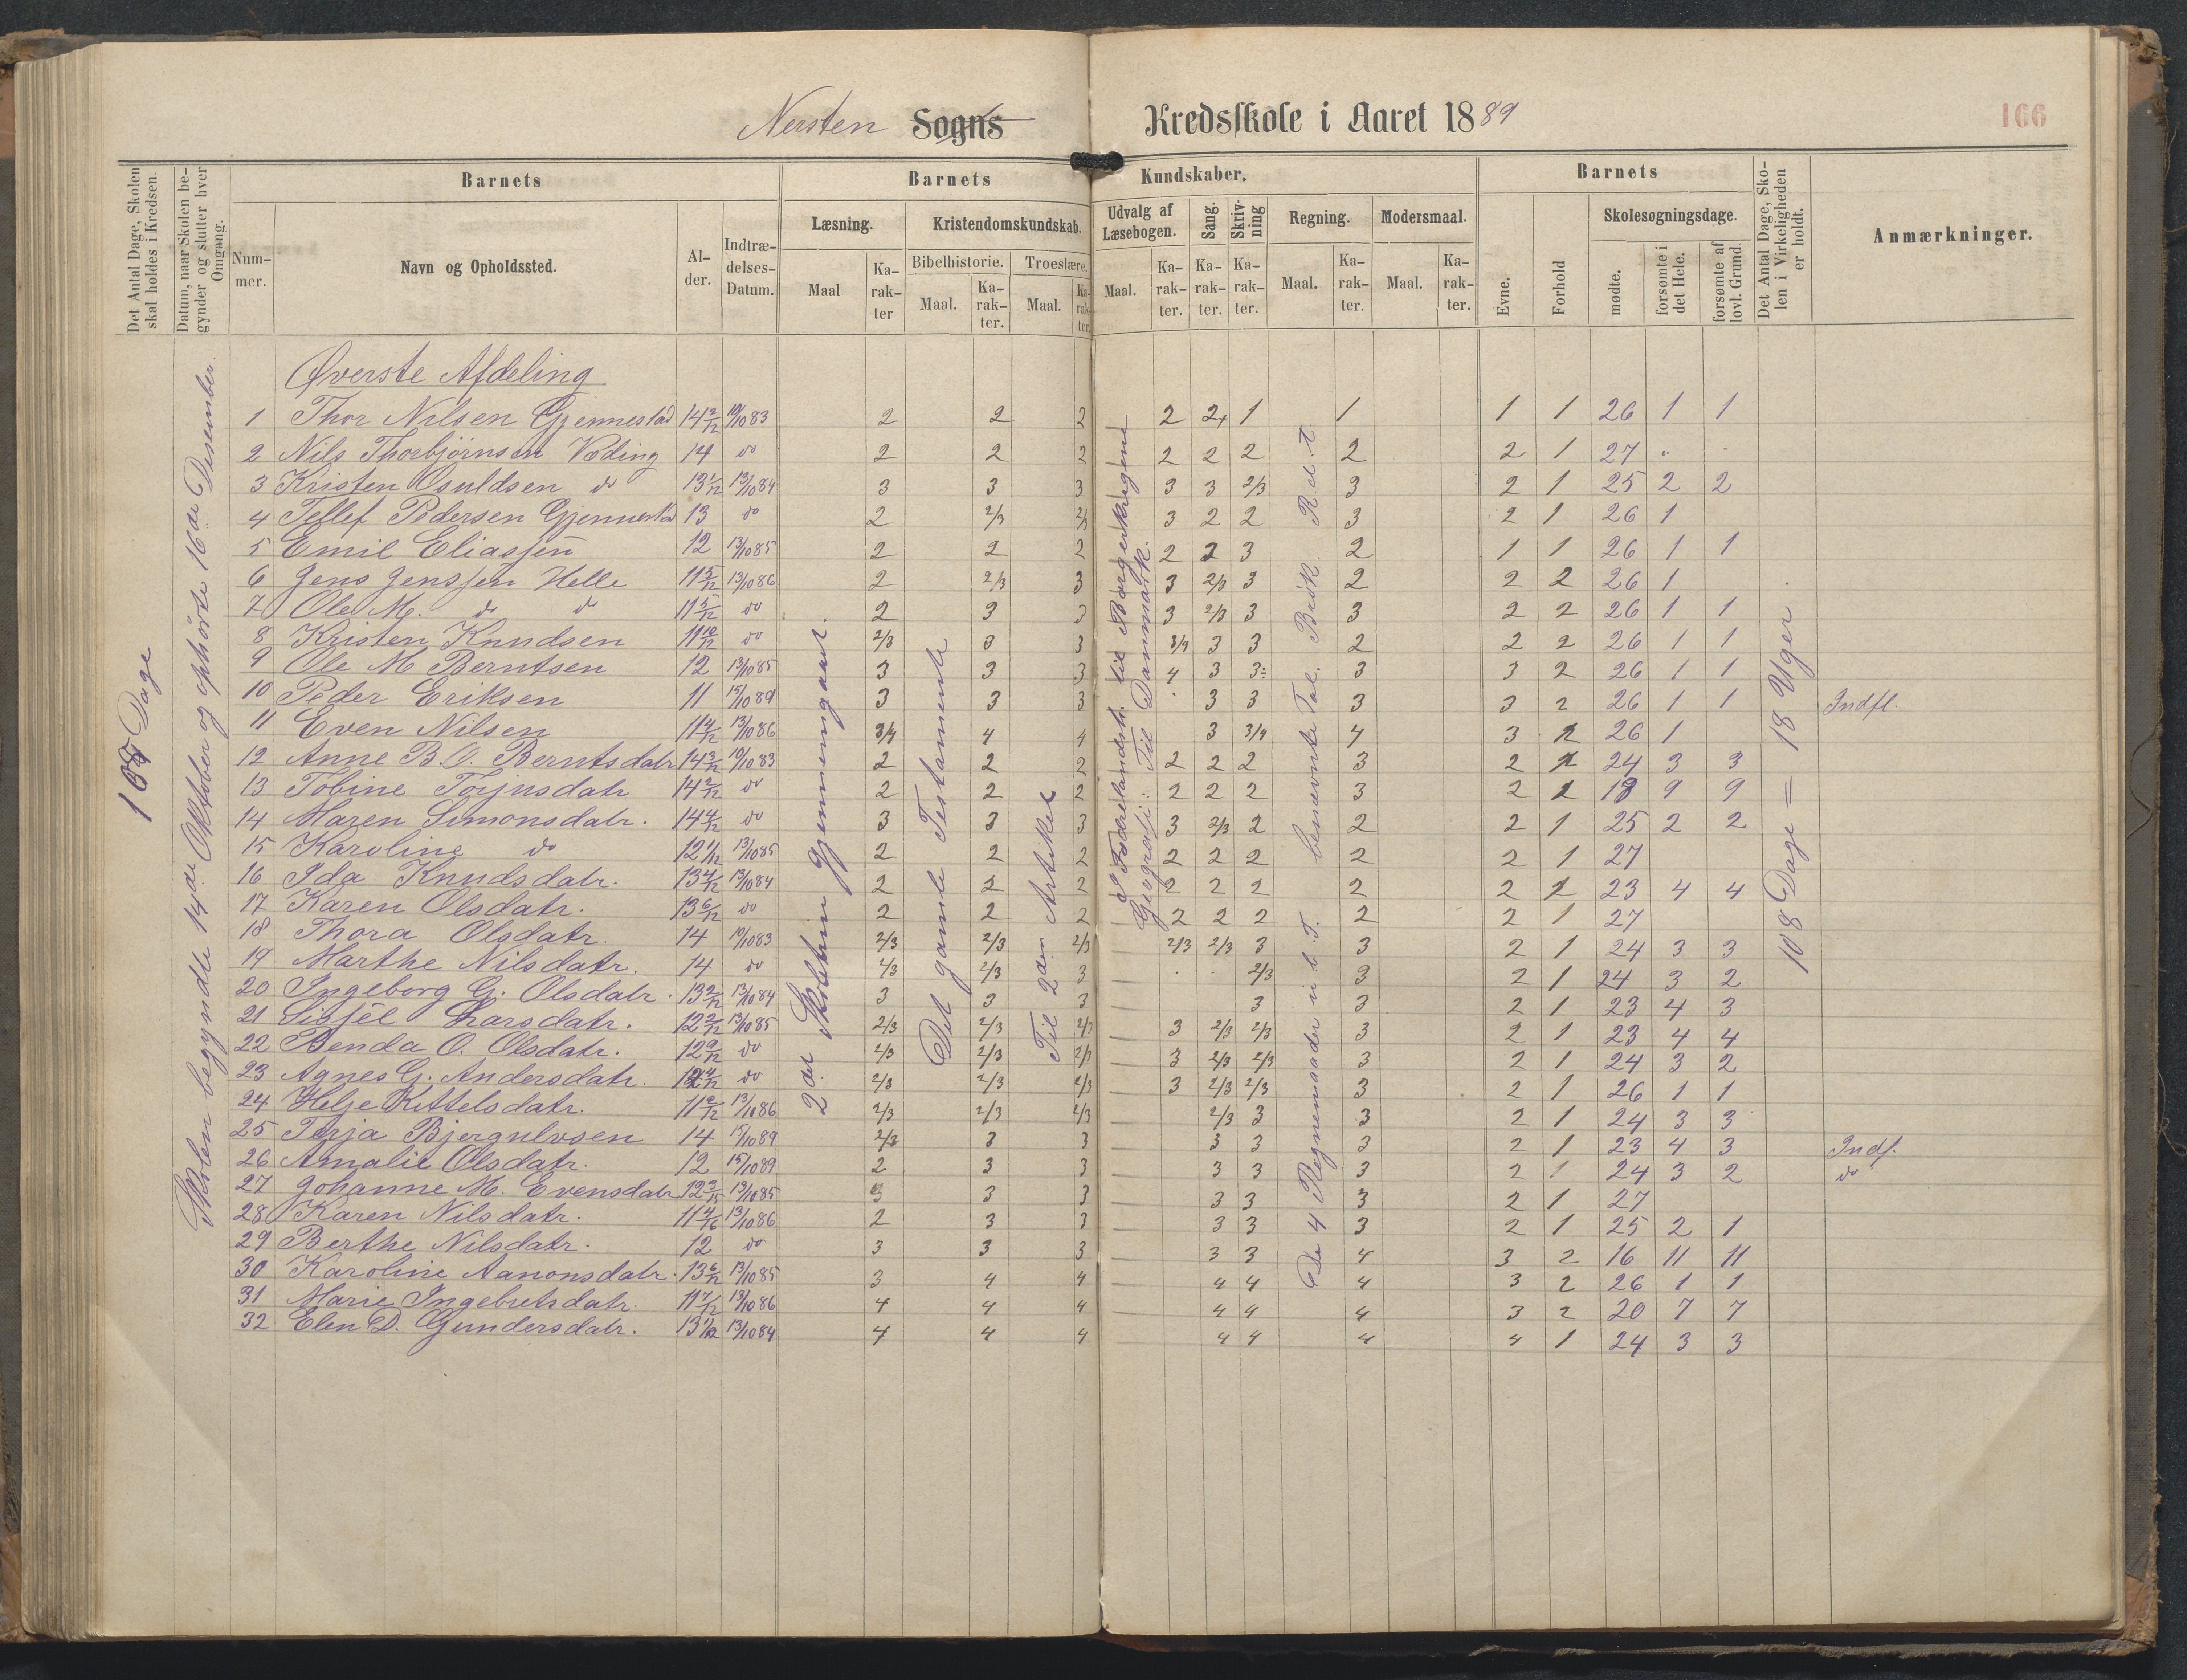 Nersten Sogns Kredsskole i Aaret 1889
166
Det Antal Dage, Skolen skal holdes i Kredsen.
Datum, naar Skolen begynder og slutter hver Omgang.
Barnets
Nummer.
Navn og Opholdssted.
Alder.
Indtrædelses-Datum.
Barnets Kundskaber.
Læsning.
Maal
Karakter
Kristendomskundskab.
Bibelhistorie.
Maal.
Karakter.
Troeslære.
Maal.
Karakter.
Udvalg af Læsebogen.
Maal.
Karakter.
Sang.
Karakter.
Skrivning
Karakter.
Regning.
Maal.
Karakter.
Modersmaal.
Maal.
Karakter.
Barnets
Evne.
Forhold
Skolesøgningsdage.
mødte.
forsømte i det Hele.
forsømte af lovl. Grund.
Det Antal Dage, Skolen i Virkeligheden er holdt.
Anmærkninger.
Dage
Skolen begyndte 14de Oktober og ophørte 16de Desember.
2det Skoletrin gjennemgaaet.
Det gamle Testamente
Til 2den Artikel
Geografi: Til Danmark.
De 4 Regnemaader
108 Dage = 18 Uger.
Øverste Afdeling
1 Thor Nilsen Gjennestad 14 2/12 10/10 83 2 2 2 2 2+ 1 1 1 1 26 1 1
2 Nils Thorbjørnsen Væding 14 do 2 2 2 2 2 2 2 2 1 27
3 Kristen Osuldsen do 13 1/12 13/10 84 3 3 3 3 3 2/3 3 2 1 25 2 2
4 Tellef Pedersen Gjennestad 13 do 2 2/3 2/3 3 2 2 3 2 1 26 1
5 Emil Eliassen 12 13/10 85 2 2 2 2 2 3 2 1 1 26 1 1
6 Jens Jenssen Helle 11 5/12 13/10 86 2 2/3 3 3 2/3 3 2 2 2 26 1
7 Ole M. do do 11 5/12 do 2 3 3 3 2/3 3 3 2 2 26 1 1
8 Kristen Knudsen 11 10/12 do 2/3 3 3 3/4 3 3 2 2 2 26 1 1
9 Ole M Berntsen 12 13/10 85 3 3 3 4 3 3 3 3 2 26 1 1
10 Peder Eriksen 11 15/10 89 3 3 3 3 3 3 3 2 26 1 1 Indfl.
11 Even Nilsen 11 4/12 13/10 86 3/4 4 4 3 3/4 4 3 2 26 1
12 Anne B. O. Berntsdatr 14 3/12 10/10 83 2 2 2 2 2 2 3 2 1 24 3 3
13 Tobine Torjusdatr 14 2/12 do 2 2 2 2 2 2 3 2 1 18 9 9
14 Maren Simonsdatr. 14 4/12 do 3 3 3 3 2/3 2 2 2 1 25 2 2
15 Karoline do 12 1/12 13/10 85 2 2 2 2 2 2 2 2 1 27
16 Ida Knudsdatr. 13 4/12 13/10 84 2 2 2 2 2 2 2 2 1 23 4 4
17 Karen Olsdatr. 13 6/12 do 2 2 2 2 2 2 2 2 1 27
18 Thora Olsdatr. 14 10/10 83 2/3 2/3 2/3 2/3 2/3 3 3 2 1 24 3 3
19 Marthe Nilsdatr. 14 do 2/3 2/3 3 2/3 3 2 1 24 3 2
20 Ingeborg G. Olsdatr. 13 2/12 13/10 84 3 3 3 3 3 2 1 23 4 3
21 Sissel Larsdatr. 12 2/12 13/10 85 2/3 2/3 2/3 3 2/3 2/3 3 2 1 23 4 4
22 Benda O. Olsdatr. 12 9/12 do 2/3 2/3 2/3 3 2/3 2/3 3 2 1 24 3 2
23 Agnes G. Andersdatr. do 2/3 2/3 2/3 3 2/3 2/3 3 2 1 26 1 1
24 Helje Kittelsdatr. 13/10 86 2/3 2/3 2/3 2/3 3 3 2 1 24 3 3
25 Terja Bjergulvsen 14 15/10 89 2/3 3 3 3 3 3 2 1 23 4 3 Indf.
26 Amalie Olsdatr. 12 15/10 89 2 3 3 3 3 3 2 1 24 3 2 do
27 Johanne M. Evensdatr 13/10 85 3 3 3 3 3 3 2 1 27
28 Karen Nilsdatr. 13/10 86 2 3 3 3 3 3 2 1 25 2 1
29 Berthe Nilsdatr. 12 do 3 3 3 3 3 4 3 2 16 11 11
30 Karoline Aanonsdatr. 13 6/12 13/10 85 3 4 4 4 4 4 3 2 26 1 1
31 Marie Ingebretsdatr. 11 7/12 13/10 86 4 4 4 4 4 4 3 2 20 7 7
32 Elen D. Gundersdatr. 13/10 84 4 4 4 4 4 4 4 1 24 3 3